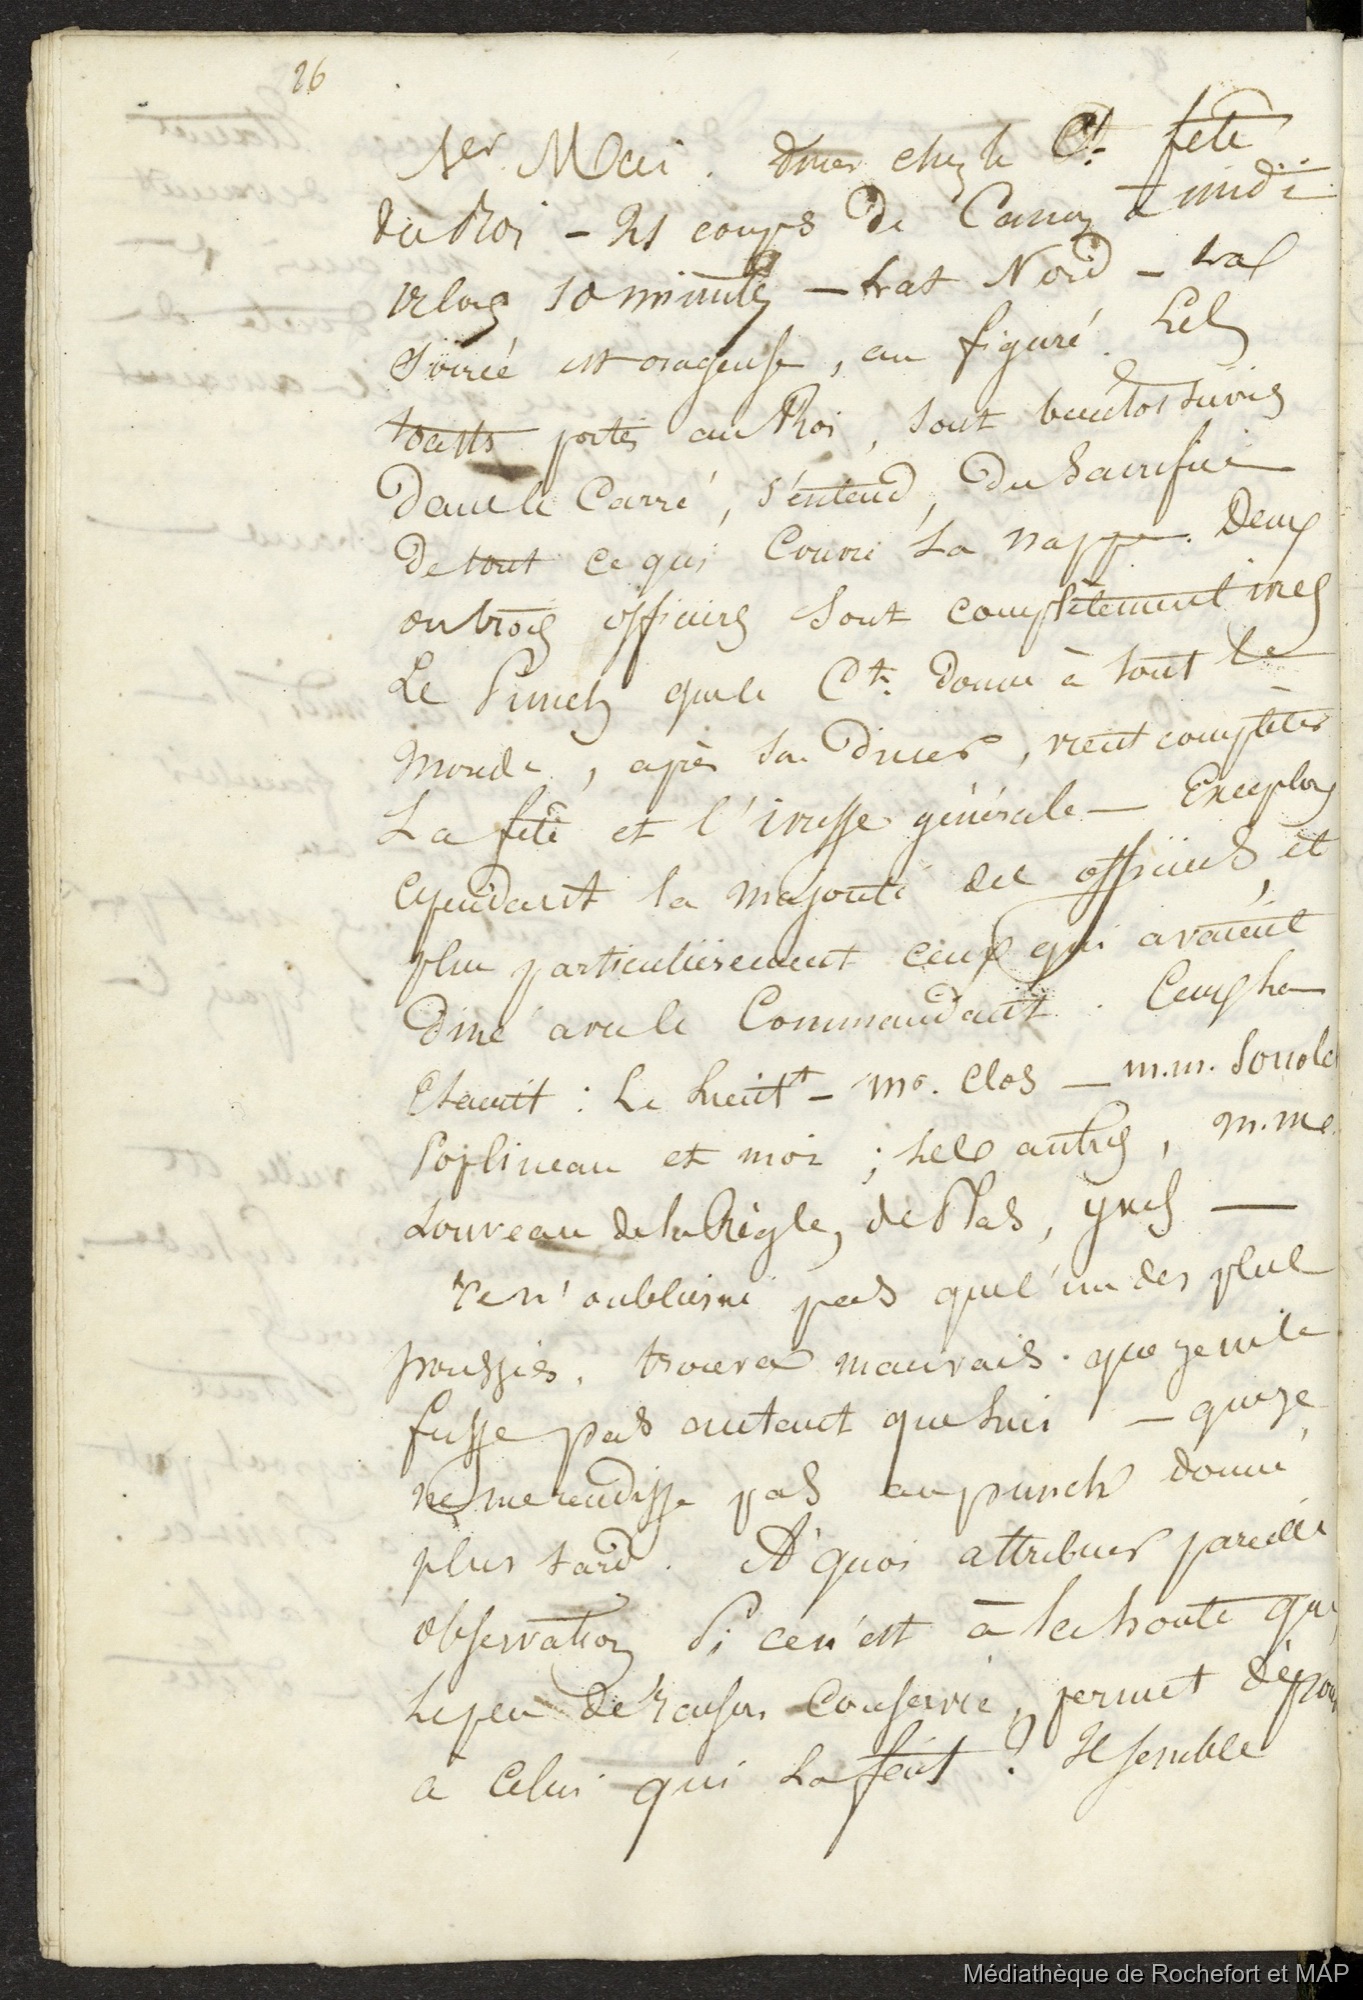 26
1er Mai. diner chez le Ct. fête
du Roi - 21 coups de Canon à midi
relog 10 minutes - Nord - La
soirée est orageuse, au figuré. Les
toasts portés au Roi, sont bientot suivis
dans le Carré, s'entend, du Sacrifice
de tout ce qui couvre la nappe. Deux
ou trois officiers sont complètement ivres
Le Punch que le Ct. donne à tout le
monde, après son diner, vient completer
La fête et l'ivresse générale - Exceptons
cependant la majorité des officiers, et
plus particulièrement ceux qui avaient
diné avec le Commandant. Ceux la
Etaient : Le Lieutt - Mr. Clos - m.m.
Poplineau et moi ; Les autres, m.m.
Louveau de la Règle, de Plas, —
Je n'oublierai pas que l'un des plus
poussés, trouva mauvais que je ne le
fusse pas autant que lui - que je
ne me rendisse pas au punch donné
plus tard. A quoi attribuer pareille
observation si ce n'est à la honte que
le peu de raison conservé, permet
a celui qui la fait ? Il semble
Médiathèque de Rochefort et MAP